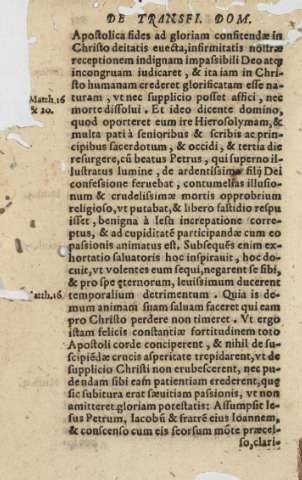 DE TRANSFI. DOM.
Apostolica fides ad gloriam confitendæ in
Christo deitatis euecta, infirmitatis nostræ
receptionem indignam impassibili Deo atq;
incongruam iudicaret, & ita iam in Chri-
sto humanam crederet glorificatam esse na-
turam, vt nec supplicio posset affici, nec
morte dissolui. Et ideo dicente domino,
quod oporteret eum ire Hierosolymam, &
multa pati à senioribus & scribis ac prin-
cipibus sacerdotum, & occidi, & tertia die
resurgere, cū beatus Petrus, qui superno il-
lustratus lumine, de ardentissima filij Dei
confessione feruebat, contumelias illusio-
num & crudelissimæ mortis opprobrium
religioso, vt putabat, & libero fastidio respu
isset, benigna à Iesu increpatione corre-
ptus, & ad cupiditatē participandæ cum eo
passionis animatus est. Subsequēs enim ex-
hortatio saluatoris hoc inspirauit, hoc do-
cuit, vt volentes eum sequi, negarent se sibi,
& pro spe ęternorum, leuissimum ducerent
temporalium detrimentum. Quia is de-
mum animam suam saluam faceret qui eam
pro Christo perdere non timeret. Vt ergo
istam felicis constantiæ fortitudinem toto
Apostoli corde conciperent, & nihil de su-
scipiēdæ crucis asperitate trepidarent, vt de
supplicio Christi non erubescerent, nec pu-
dendam sibi eam patientiam crederent, quę
sic subitura erat sæuitiam passionis, vt non
amitteret gloriam potestatis: Assumpsit Ie-
sus Petrum, Iacobū & fratrē eius Ioannem,
& conscenso cum eis seorsum mōte præcel-
so, clari-
Matth.16
& 20.
Matth.16.